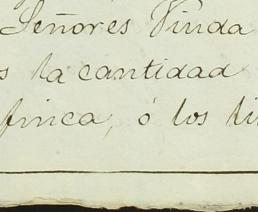 Señores Viuda
s la cantidad
finca, ó los